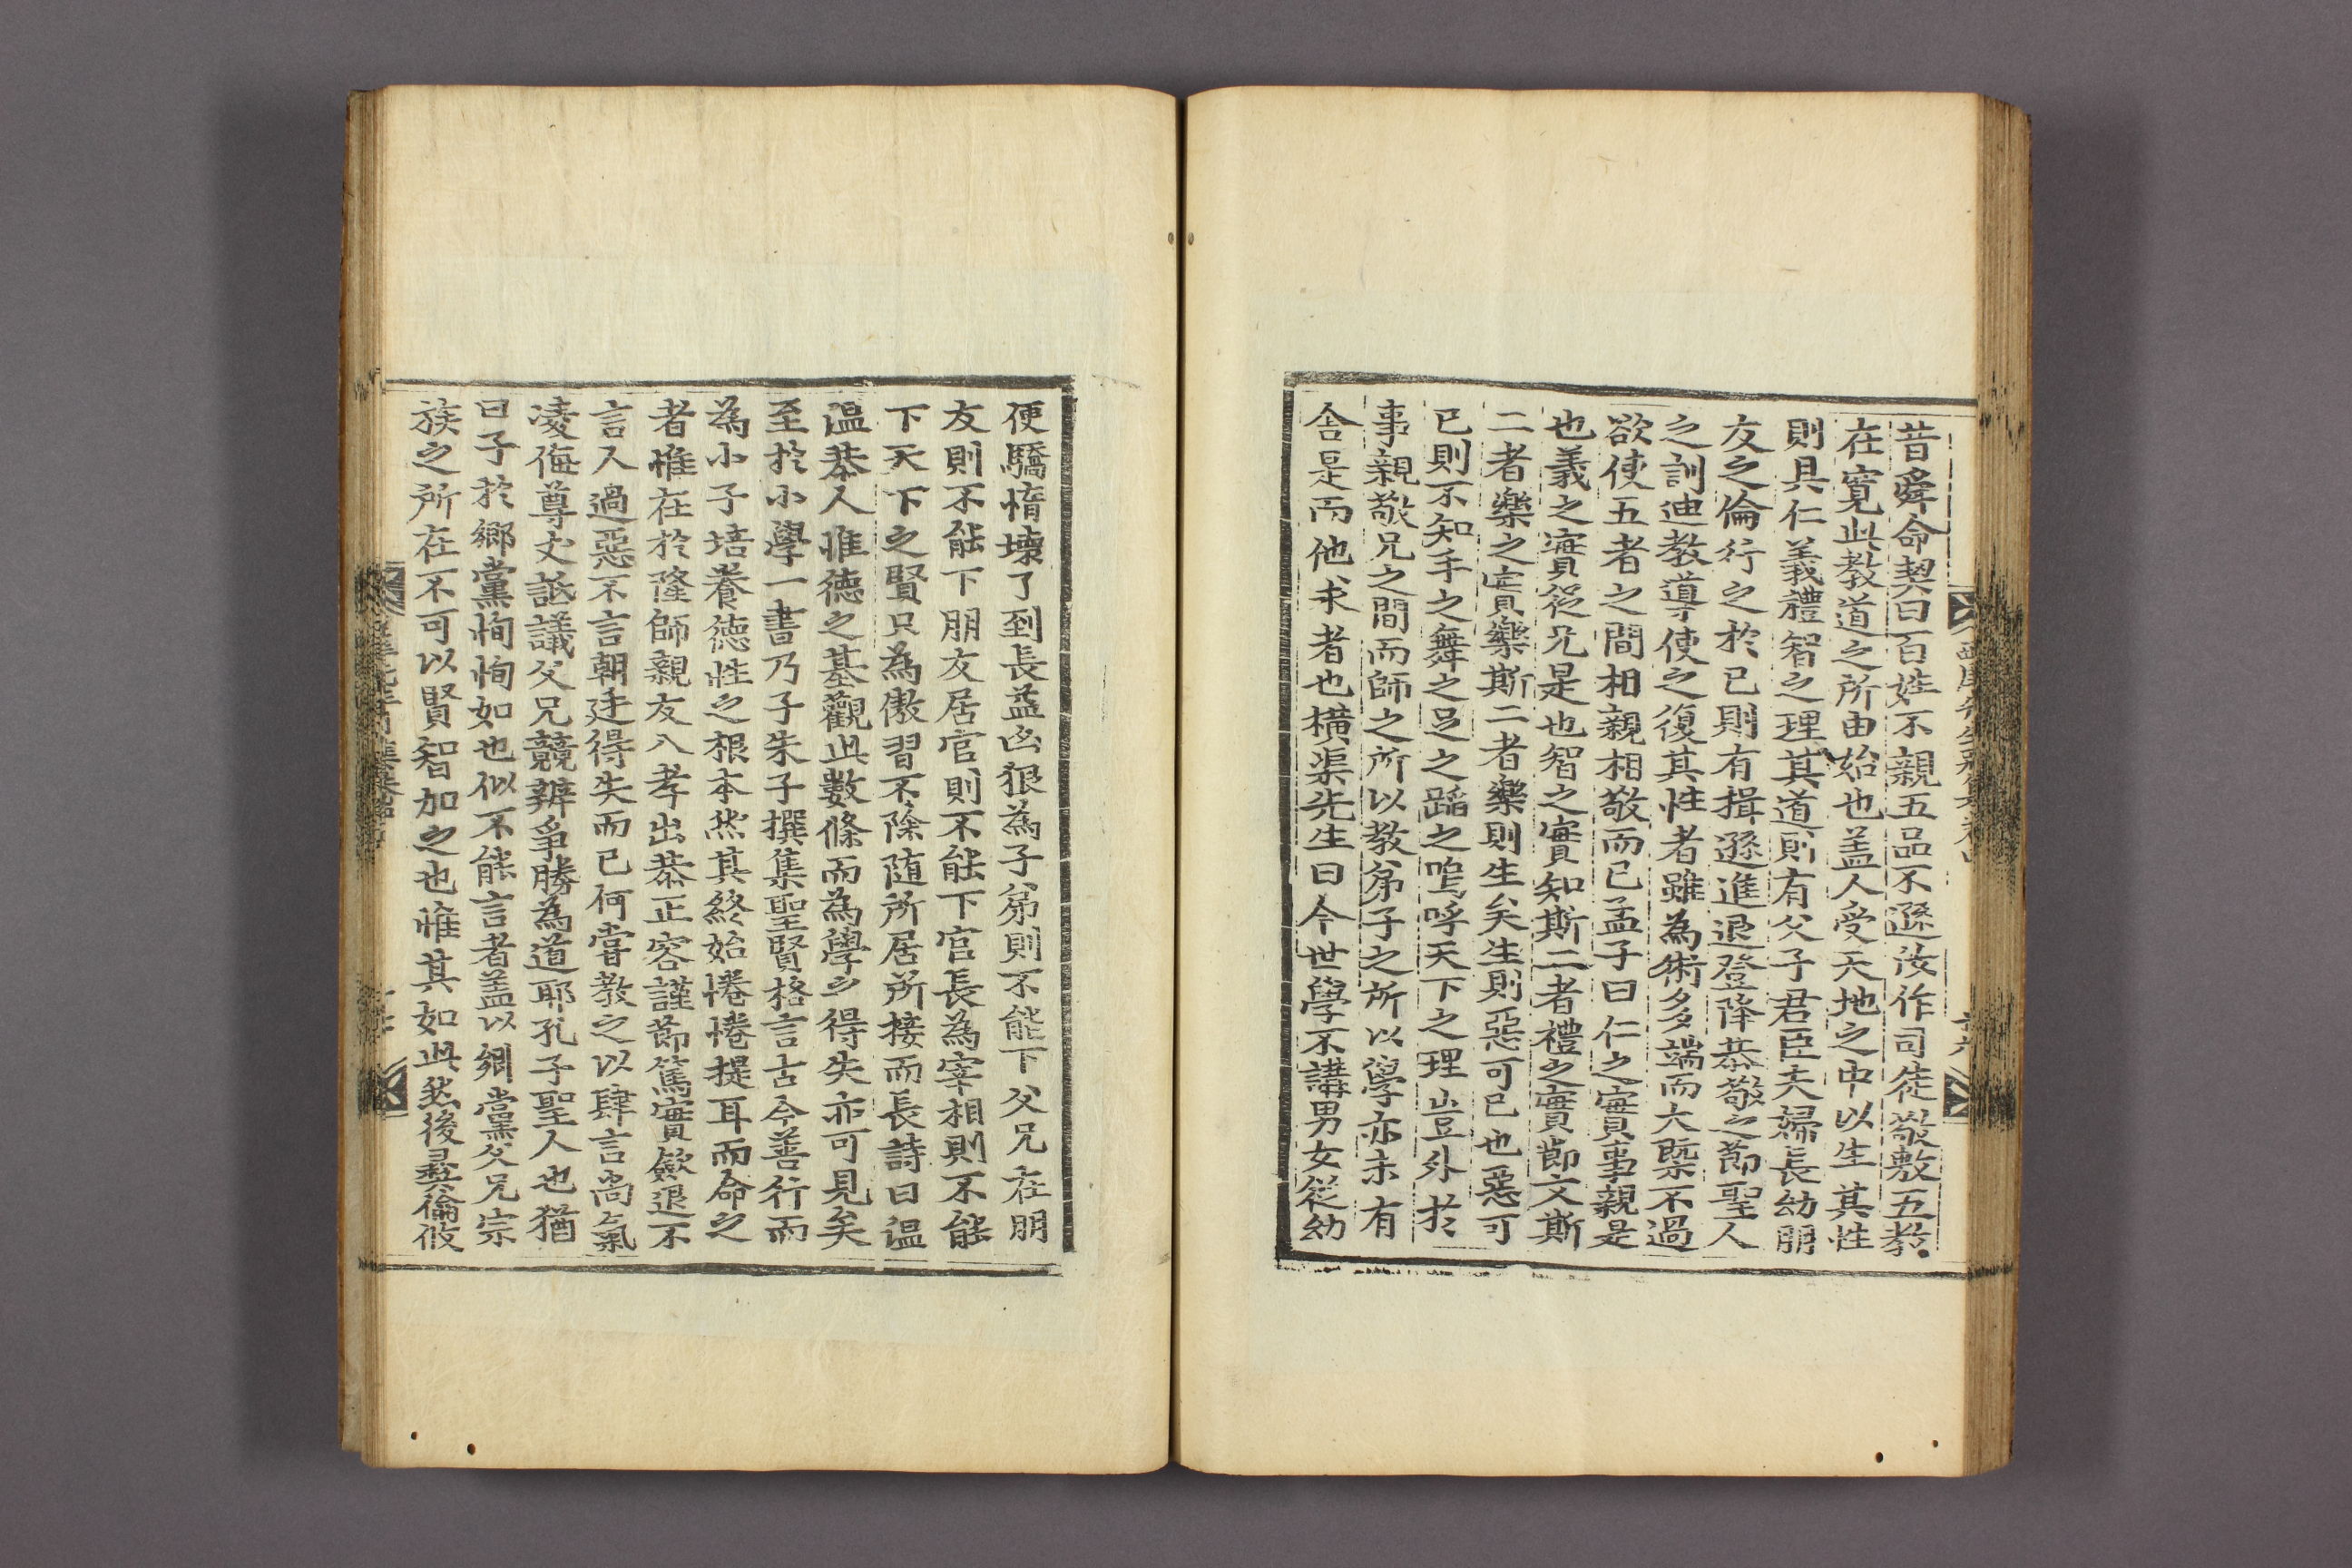 昔舜命契曰百姓不親五品不遜汝作司徒敬敷五教
在寬此教道之所由始也盖人受天地之中以生其性
則具仁義禮智之理其道則有父子君臣夫婦長幼朋
友之倫行之於已則有揖遜進退登降恭敬之節聖人
之訓迪教導使之復其性者雖為術多端而大槩不過
欲使五者之間相親相敬而已孟子曰仁之實事親是
也義之實從兄是也智之實知斯二者禮之實節文斯
二者樂之實樂斯二者樂則生矣生則惡可已也惡可
已則不知手之舞之足之蹈之嗚呼天下之理豈外於
事親敬兄之間而師之所以教弟子之所以學亦未有
舎是而他求者也橫渠先生曰今世學不講男女從幼
便驕惰壞了到長益凶狠為子弟則不能下父兄在朋
友則不能下朋友居官則不能下官長為宰相則不能
下天下之賢只為傲習不除随所居所接而長詩曰温
温恭人惟德之基觀此數條而為學之得失亦可見矣
至於小學一書乃子朱子撰集聖賢格言古今善行而
為小子培養德性之根本然其終始惓惓提耳而命之
者惟在於隆師親友入孝出恭正容謹節篤實歛退不
言人過惡不言朝廷得失而已何甞教之以肆言尚氣
凌侮尊丈詆議父兄競辨爭勝為道耶孔子聖人也猶
曰子於鄉黨恂恂如也似不能言者盖以鄉黨父兄宗
族之所在不可以賢智加之也惟其如此然後彛倫攸